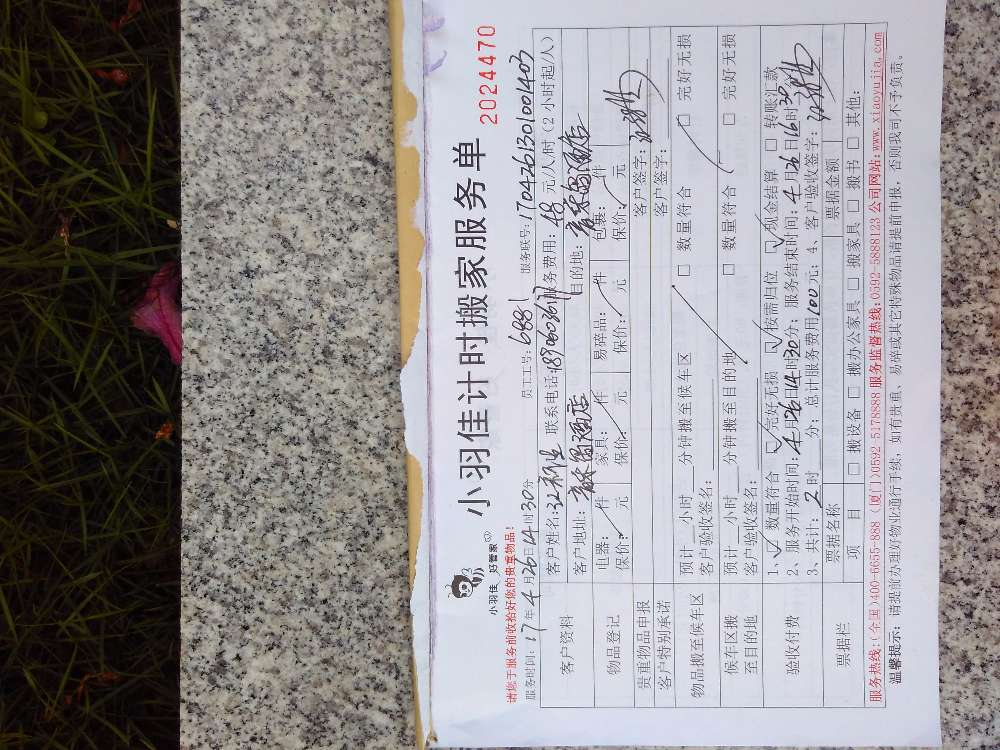 小羽佳 好管家
小羽佳计时搬家服务单 2024470
请您于服务前收拾好您的贵重物品!
服务时间:17年4月26日14时30分 员工工号:6881 服务联号:1704261301001403
客户资料 客户姓名: 联系电话: 服务费用:48元/人/时(2小时起/人)
客户地址: 目的地:
物品登记 电器: 件 家具: 件 易碎品: 件 包裹: 件
保价: 元 保价: 元 保价: 元 保价: 元
贵重物品申报 客户签字:
客户特别承诺 客户签字:
物品搬至候车区 预计 小时 分钟搬至候车区 □ 数量符合 □ 完好无损
客户验收签名:
候车区搬至目的地 预计 小时 分钟搬至目的地 □ 数量符合 □ 完好无损
客户验收签名:
验收付费 1、☑ 数量符合 ☑ 完好无损 ☑ 按需归位 ☑ 现金结算 □ 转账汇款
2、服务开始时间:4月26日14时30分; 服务结束时间:4月26日16时30
3、共计:2时 分; 总计服务费用100元; 4、客户验收签字:
票据栏 票据名称 票据金额
项 目 □ 搬设备 □ 搬办公家具 □ 搬家具 □ 搬书 □ 其他:
服务热线:(全国)400-6655-888 (厦门)0592-5178888 服务监督热线:0592-5888123 公司网站:www.xiaoyujia.com
温馨提示: 请提前办理好物业通行手续, 如有贵重、易碎或其它特殊物品请提前申报, 否则我司不予负责。